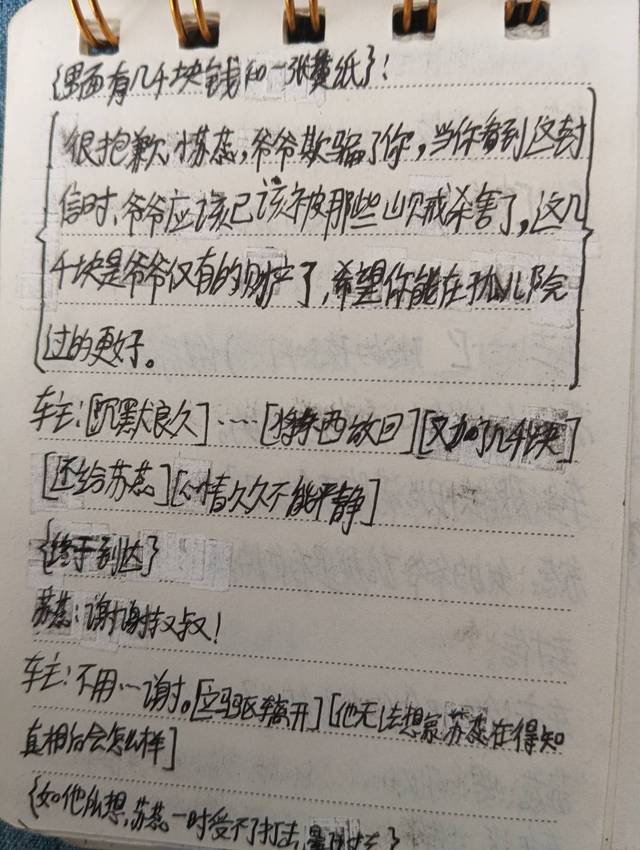 {里面有几千块钱和一张黄纸}:
很抱歉,小苏蕊,爷爷欺骗了你,当你看到这封
信时,爷爷应该已该被那些山贼杀害了,这几
千块是爷爷仅有的财产了,希望你能在孤儿院
过的更好。
车主:[沉默良久]……[将东西放回][又加了几千块]
[还给苏蕊][心情久久不能平静]
{终于到达}
苏蕊:谢谢叔叔!
车主:不用…谢。[立马驱车离开][他无法想象苏蕊在得知
真相后会怎么样]
{如他所想,苏蕊一时受不了打击,